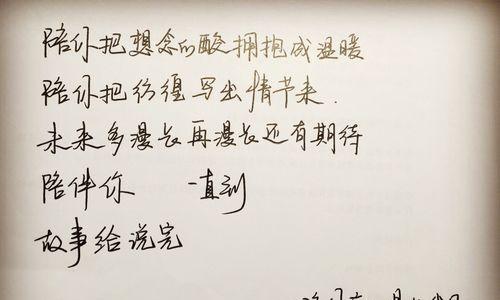 陪你把想念的酸拥抱成温暖
陪你把彷徨写出情节来.
未来多漫长再漫长还有期待
陪伴你 一直到
故事给说完